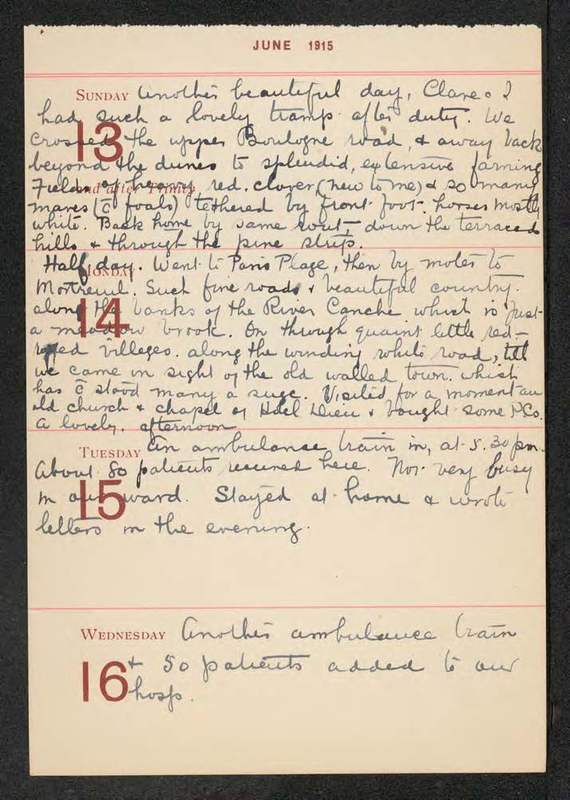 JUNE 1915
SUNDAY Another beautiful day, Clare & I
had such a lovely tramp after duty. We
13
crossed the upper Boulogne road, & away back
beyond the dunes to splendid, extensive farming
2nd after Trinity
Fields of red clover (new to me) & so many
mares (c̄ foals) tethered by front foot. horses mostly
white. Back home by same route, down the terraced
hills & through the pine strips.
MONDAY
Half day. Went to Paris Plage, then by motor to
Montreuil. Such fine roads & beautiful country.
14
along the banks of the River Canche which is just
a meadow brook. On through quaint little red-
roofed villages. along the winding white road, till
we came in sight of the old walled town. which
has c̄ stood many a siege. Visited for a moment an
old church & chapel of Hotel Dieu & bought some P.Cs.
a lovely. afternoon
TUESDAY An ambulance train in, at 5.30 pm.
About 80 patients received here. Not very busy
15
in our ward. Stayed at home & wrote
letters in the evening.
WEDNESDAY Another ambulance train
16
& 50 patients added to our
hosp.